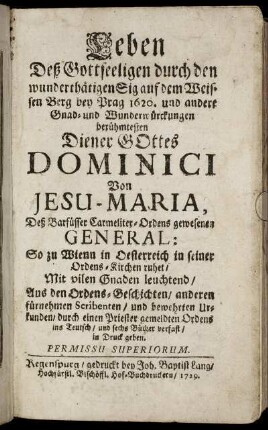 Leben
Deß Gottseeligen durch den
wunderthätigen Sig auf dem Weis-
sen Berg bey Prag 1620. und andere
Gnad- und Wunderwürckungen
berühmtesten
Diener GOttes
DOMINICI
Von
JESU-MARIA,
Deß Barfüsser Carmeliter-Ordens gewesenen
GENERAL:
So zu Wienn in Oesterreich in seiner
Ordens-Kirchen ruhet/
Mit vilen Gnaden leuchtend/
Aus den Ordens-Geschichten/ anderen
fürnehmen Scribenten/ und bewehrten Ur-
kunden/ durch einen Priester gemeldten Ordens
ins Teutsch/ und sechs Bücher verfast/
in Druck geben.
PERMISSU SUPERIORUM.
Regenspurg/ gedruckt bey Joh. Baptist Lang/
Hochfürstl. Bischöffl. Hof-Buchdruckern/ 1729.